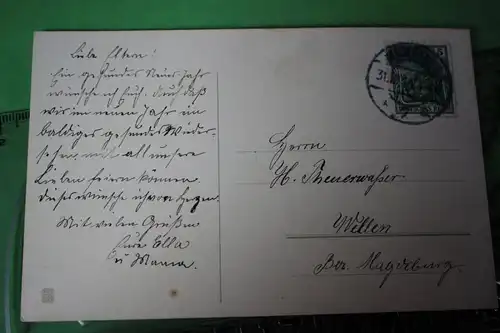 Liebe Eltern!
Ein gesundes Neues Jahr
wünsche ich Euch. Auf daß
wir im neuen Jahr ein
baldiges gesundes Wieder-
sehen mit all unsere
Lieben feiern können
dieses wünsche ich von Herzen.
Mit vielen Grüßen
Eure Ella
u Mama.
Herrn
H. Theuerwasser
Wellen
Bez. Magdeburg.
31.
5